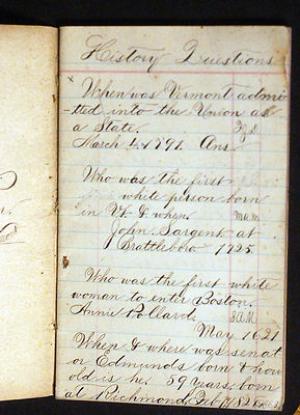 History Questions
When was Vermont admi-
-tted into the Union as
a State.
March 4, 1791. Ans.
Who was the first
white person born
in Vt & when. m.a.m.
John Sargent at
Brattleboro 1725.
Who was the first white
woman to enter Boston.
Annie Pollard. S.A.M.
May 1621
When & where was senat
or Edmunds born & how
old is he. 59 years. born
at Richmond, Feb. 1, 1828